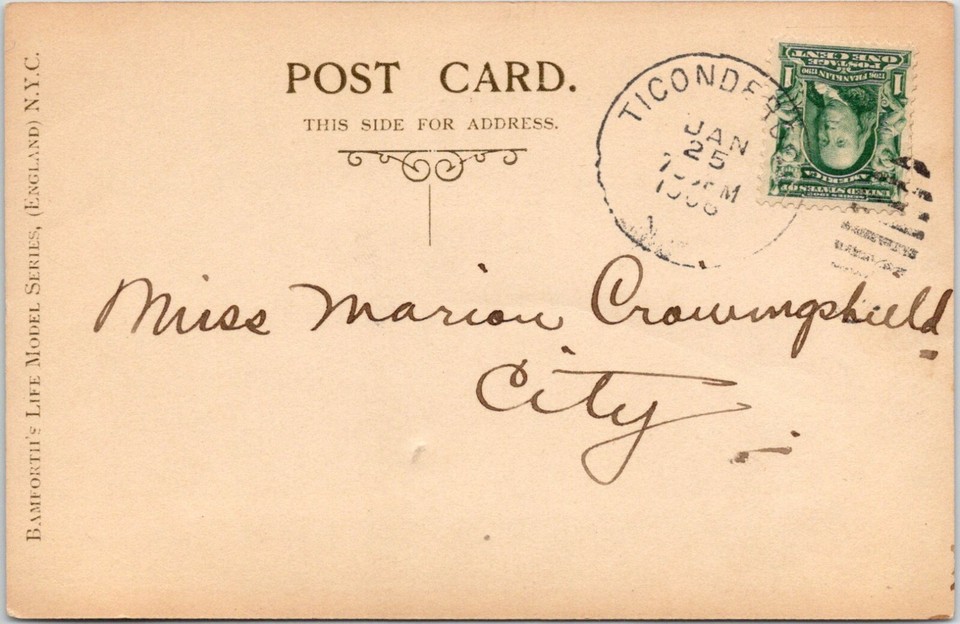 POST CARD.
THIS SIDE FOR ADDRESS.
BAMFORTH'S LIFE MODEL SERIES, (ENGLAND) N.Y.C.
TICONDERO
JAN
25
M
SERIES 1902
UNITED STATES OF
AMERICA
1706 FRANKLIN 1790
POSTAGE
ONE CENT
1 1
Miss Marion Crowingshield
City